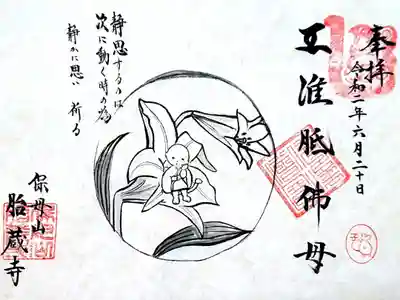 奉拝
18
令和二年六月二十日
准胝佛母
静思するのは
次に動く時の為
静かに思い 祈る
保母山
胎蔵寺